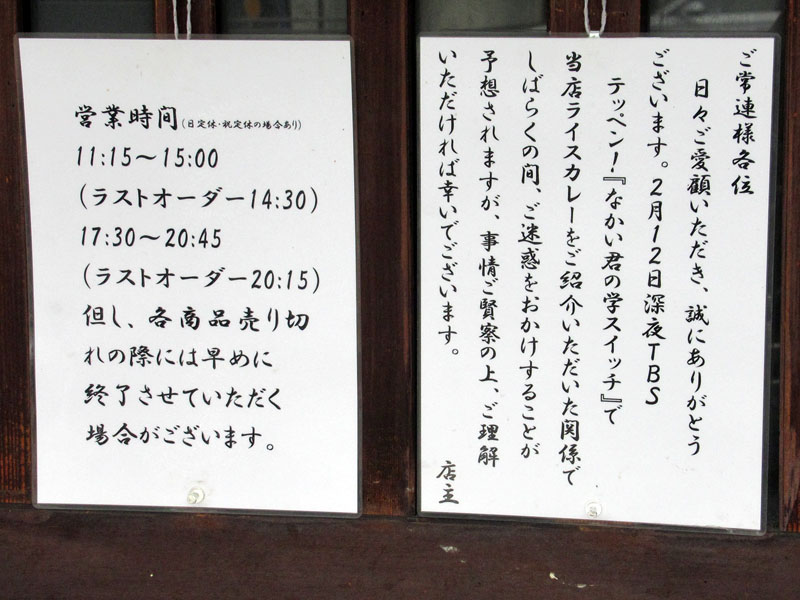 営業時間(日定休・祝定休の場合あり)
11:15～15:00
(ラストオーダー14:30)
17:30～20:45
(ラストオーダー20:15)
但し、各商品売り切
れの際には早めに
終了させていただく
場合がございます。
ご常連様各位
日々ご愛顧いただき、誠にありがとう
ございます。2月12日深夜TBS
テッペン!『なかい君の学スイッチ』で
当店ライスカレーをご紹介いただいた関係で
しばらくの間、ご迷惑をおかけすることが
予想されますが、事情ご賢察の上、ご理解
いただければ幸いでございます。
店主